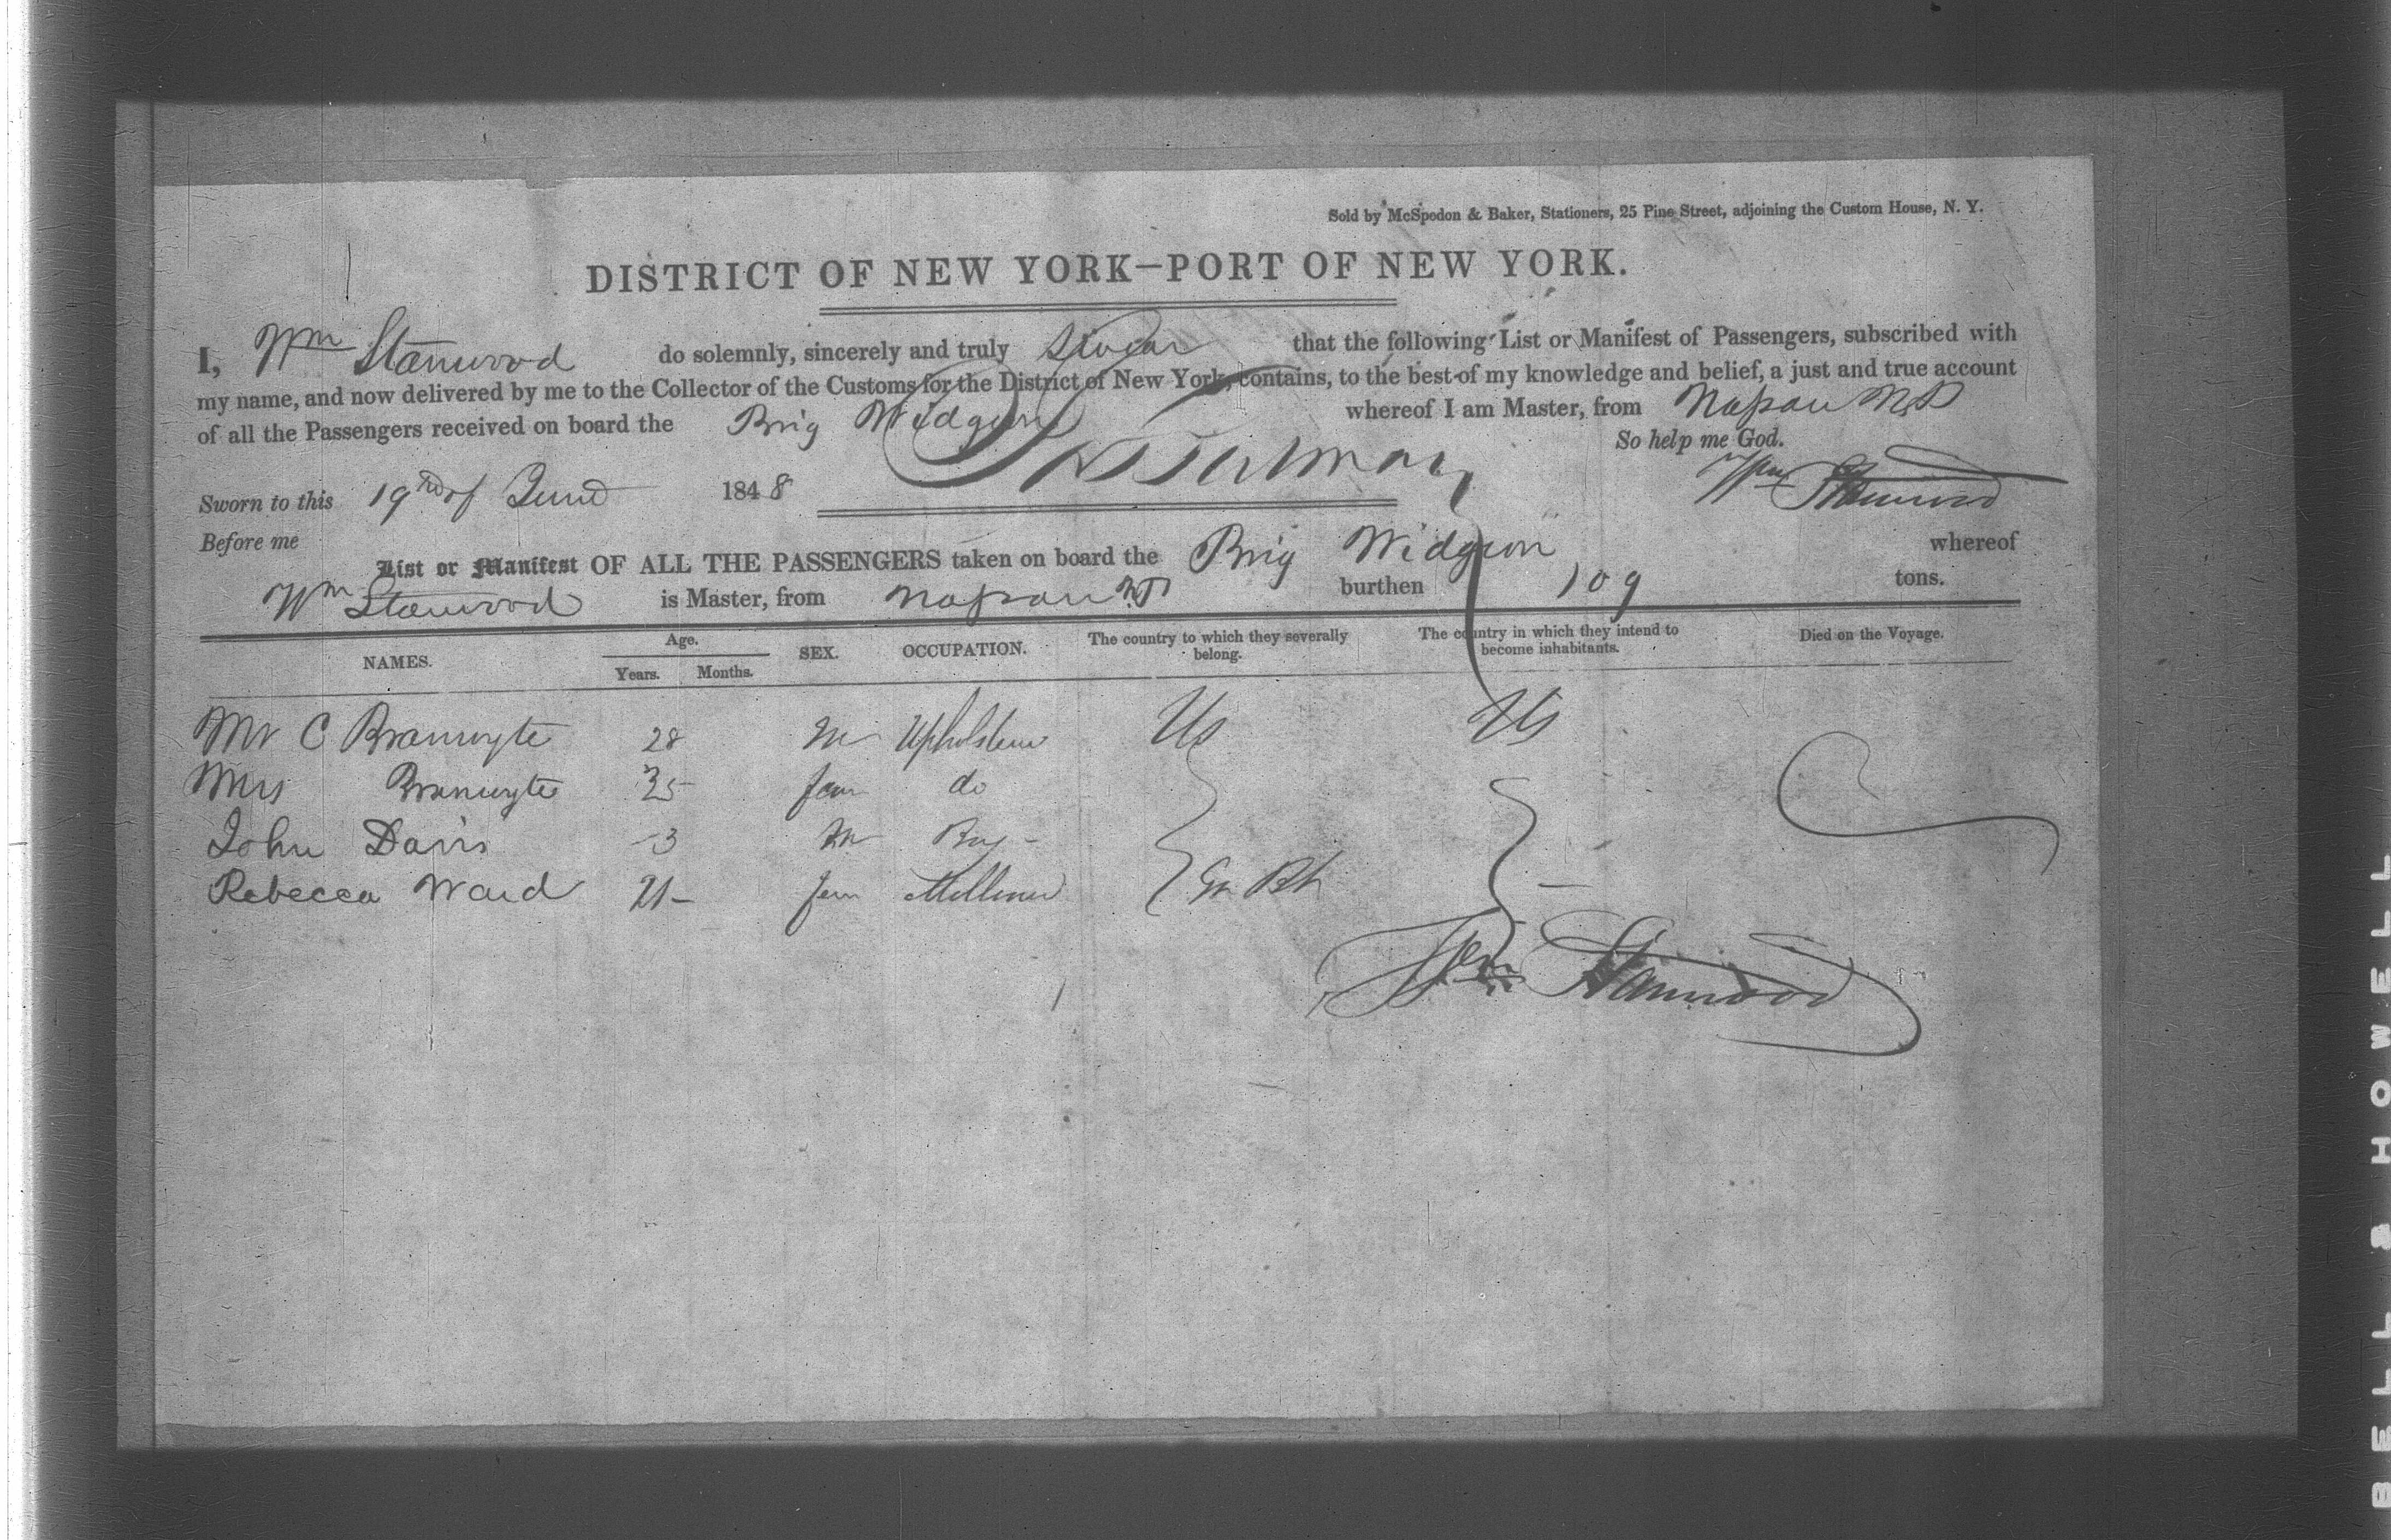 Sold by McSpedon & Baker, Stationers, 25 Pine Street, adjoining the Custom House, N. Y.
DISTRICT OF NEW YORK—PORT OF NEW YORK.
I, Wm Stanwood do solemnly, sincerely and truly Swear that the following List or Manifest of Passengers, subscribed with
my name, and now delivered by me to the Collector of the Customs for the District of New York, contains, to the best of my knowledge and belief, a just and true account
of all the Passengers received on board the Brig Widgeon whereof I am Master, from Nassau N.P
So help me God.
Sworn to this 19th of June 1848 Wm Stanwood
Before me
List or Manifest OF ALL THE PASSENGERS taken on board the Brig Widgeon whereof
Wm Stanwood is Master, from Nassau NP burthen 109 tons.
NAMES. Age. Years. Months. SEX. OCCUPATION. The country to which they severally belong. The country in which they intend to become inhabitants. Died on the Voyage.
Mr C Bramwyte 28 M Upholsterer Us Us
Mrs Bramwyte 35 fem do
John Davis 3 M Boy
Rebecca Ward 21 fem Milliner Gr Bt
Wm Stanwood
BELL & HOWELL